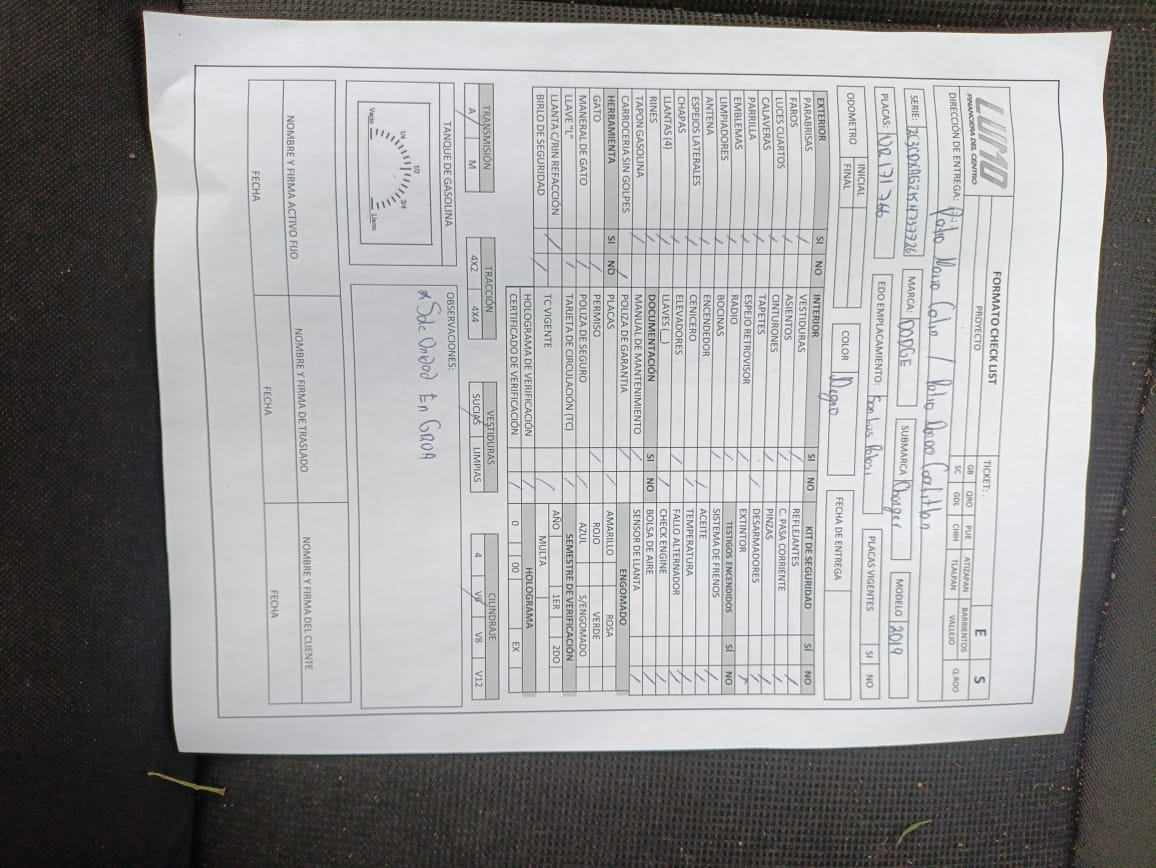 LUMO
FINANCIERA DEL CENTRO
FORMATO CHECK LIST
PROYECTO
TICKET: E S
GB QRO PUE ATIZAPAN BARRIENTOS Q.ROO
SC GDL CHIH TLALPAN VALLEJO
DIRECCIÓN DE ENTREGA: Patio Mario Colin / Patio
SERIE: MARCA: DODGE SUBMARCA Charger MODELO 2019
PLACAS: EDO EMPLACAMIENTO: San Luis Potosi PLACAS VIGENTES SI NO
ODOMETRO INICIAL COLOR Negro FECHA DE ENTREGA
FINAL
EXTERIOR SI NO INTERIOR SI NO KIT DE SEGURIDAD SÍ NO
PARABRISAS VESTIDURAS REFLEJANTES
FAROS ASIENTOS C. PASA CORRIENTE
LUCES CUARTOS CINTURONES PINZAS
CALAVERAS TAPETES DESARMADORES
PARRILLA ESPEJO RETROVISOR EXTINTOR
EMBLEMAS RADIO TESTIGOS ENCENDIDOS SÍ NO
LIMPIADORES BOCINAS SISTEMA DE FRENOS
ANTENA ENCENDEDOR ACEITE
ESPEJOS LATERALES CENICERO TEMPERATURA
CHAPAS ELEVADORES FALLO ALTERNADOR
LLANTAS (4) LLAVES (__) CHECK ENGINE
RINES DOCUMENTACIÓN SI NO BOLSA DE AIRE
TAPON GASOLINA MANUAL DE MANTENIMIENTO SENSOR DE LLANTA
CARROCERIA SIN GOLPES POLIZA DE GARANTIA ENGOMADO
HERRAMIENTA SI NO PLACAS AMARILLO ROSA
GATO PERMISO ROJO VERDE
MANERAL DE GATO POLIZA DE SEGURO AZUL S/ENGOMADO
LLAVE "L" TARJETA DE CIRCULACIÓN (TC) SEMESTRE DE VERIFICACIÓN
LLANTA C/RIN REFACCIÓN TC VIGENTE AÑO 1ER 2DO
BIRLO DE SEGURIDAD MULTA
HOLOGRAMA DE VERIFICACIÓN HOLOGRAMA
CERTIFICADO DE VERIFICACIÓN 0 00 EX
TRANSMISIÓN TRACCIÓN VESTIDURAS CILINDRAJE
A M 4X2 4X4 SUCIAS LIMPIAS 4 V6 V8 V12
TANQUE DE GASOLINA OBSERVACIONES:
Vacio 1/4 1/2 3/4 Lleno
En GRUA
NOMBRE Y FIRMA ACTIVO FIJO NOMBRE Y FIRMA DE TRASLADO NOMBRE Y FIRMA DEL CLIENTE
FECHA FECHA FECHA